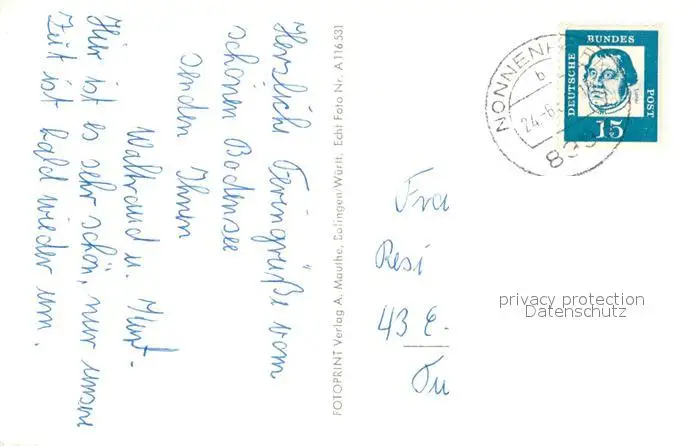 Herzliche Feriengrüße vom
schönen Bodensee
senden Ihnen
Waltraud u. Kurt.
Hier ist es sehr schön, nur unsere
Zeit ist bald wieder um.
FOTOPRINT Verlag A. Mauthe, Balingen/Württ. Echt Foto Nr. A 116 531
NONNENH
b
24.-6.
DEUTSCHE
BUNDES
POST
15
Fra
Resi
43 E.
privacy protection
Datenschutz